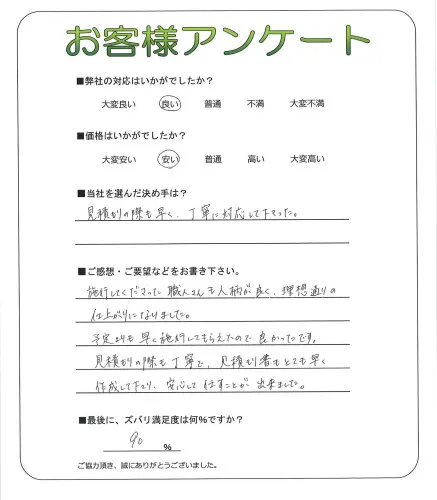 お客様アンケート
■弊社の対応はいかがでしたか？
大変良い 良い 普通 不満 大変不満
■価格はいかがでしたか？
大変安い 安い 普通 高い 大変高い
■当社を選んだ決め手は？
見積もりの際も早く、丁寧に対応して下さった。
■ご感想・ご要望などをお書き下さい。
施行してくださった職人さんも人柄が良く、理想通りの
仕上がりになりました。
予定よりも早く施行してもらえたので良かったです。
見積もりの際も丁寧で、見積り書もとても早く
作成して下さり、安心して任すことが出来ました。
■最後に、ズバリ満足度は何％ですか？
90 ％
ご協力頂き、誠にありがとうございました。